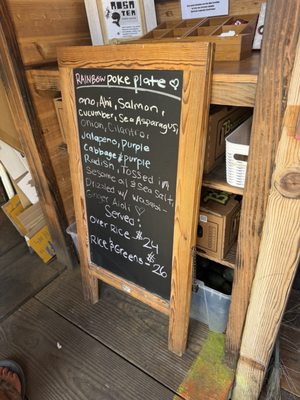 ROSA
TEA
RAINBOW POKE PLATE ♡
ono, Ahi, Salmon,
Cucumber, Sea Asparagus,
Onion, Cilantro,
Jalapeño, Purple
Cabbage & Purple
Radish, Tossed in
Sesame oil & sea salt,
Drizzled w/ Wasabi-
Ginger Aioli ♡
Served:
Over Rice $24
Rice & Greens $26